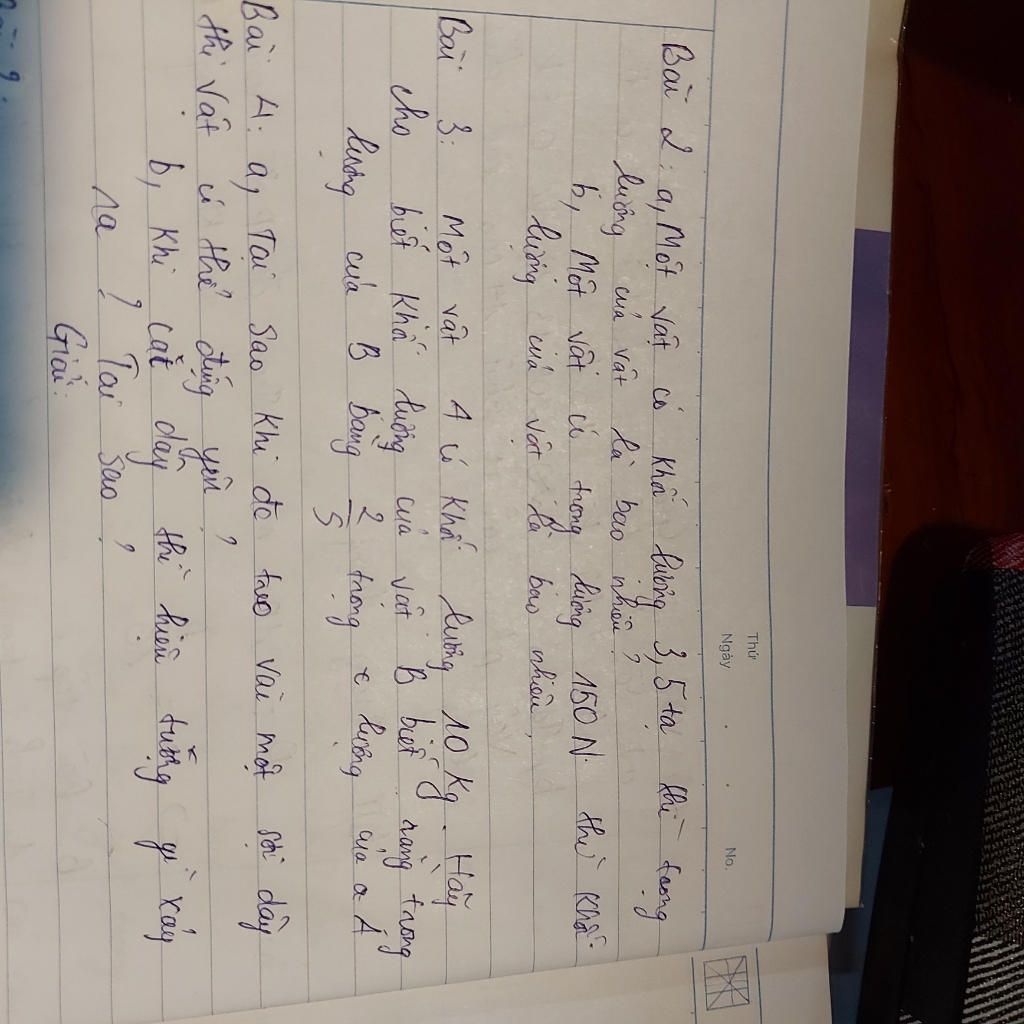 Thứ
Ngày . . No.
Bài 2: a, Một vật có khối lượng 3,5 tạ thì trọng
lượng của vật là bao nhiêu?
b, Một vật có trọng lượng 150N thì khối
lượng của vật là bao nhiêu,
Bài 3: Một vật A có khối lượng 10 Kg. Hãy
cho biết khối lượng của vật B biết rằng trọng
lượng của B bằng 2/5 trọng c lượng của a A
Bài 4: a, Tại sao khi đo treo vài một sợi dây
thì vật có thể đứng yên?
b, Khi cắt dây thì hiện tượng gì xảy
ra? Tại sao?
Giải: